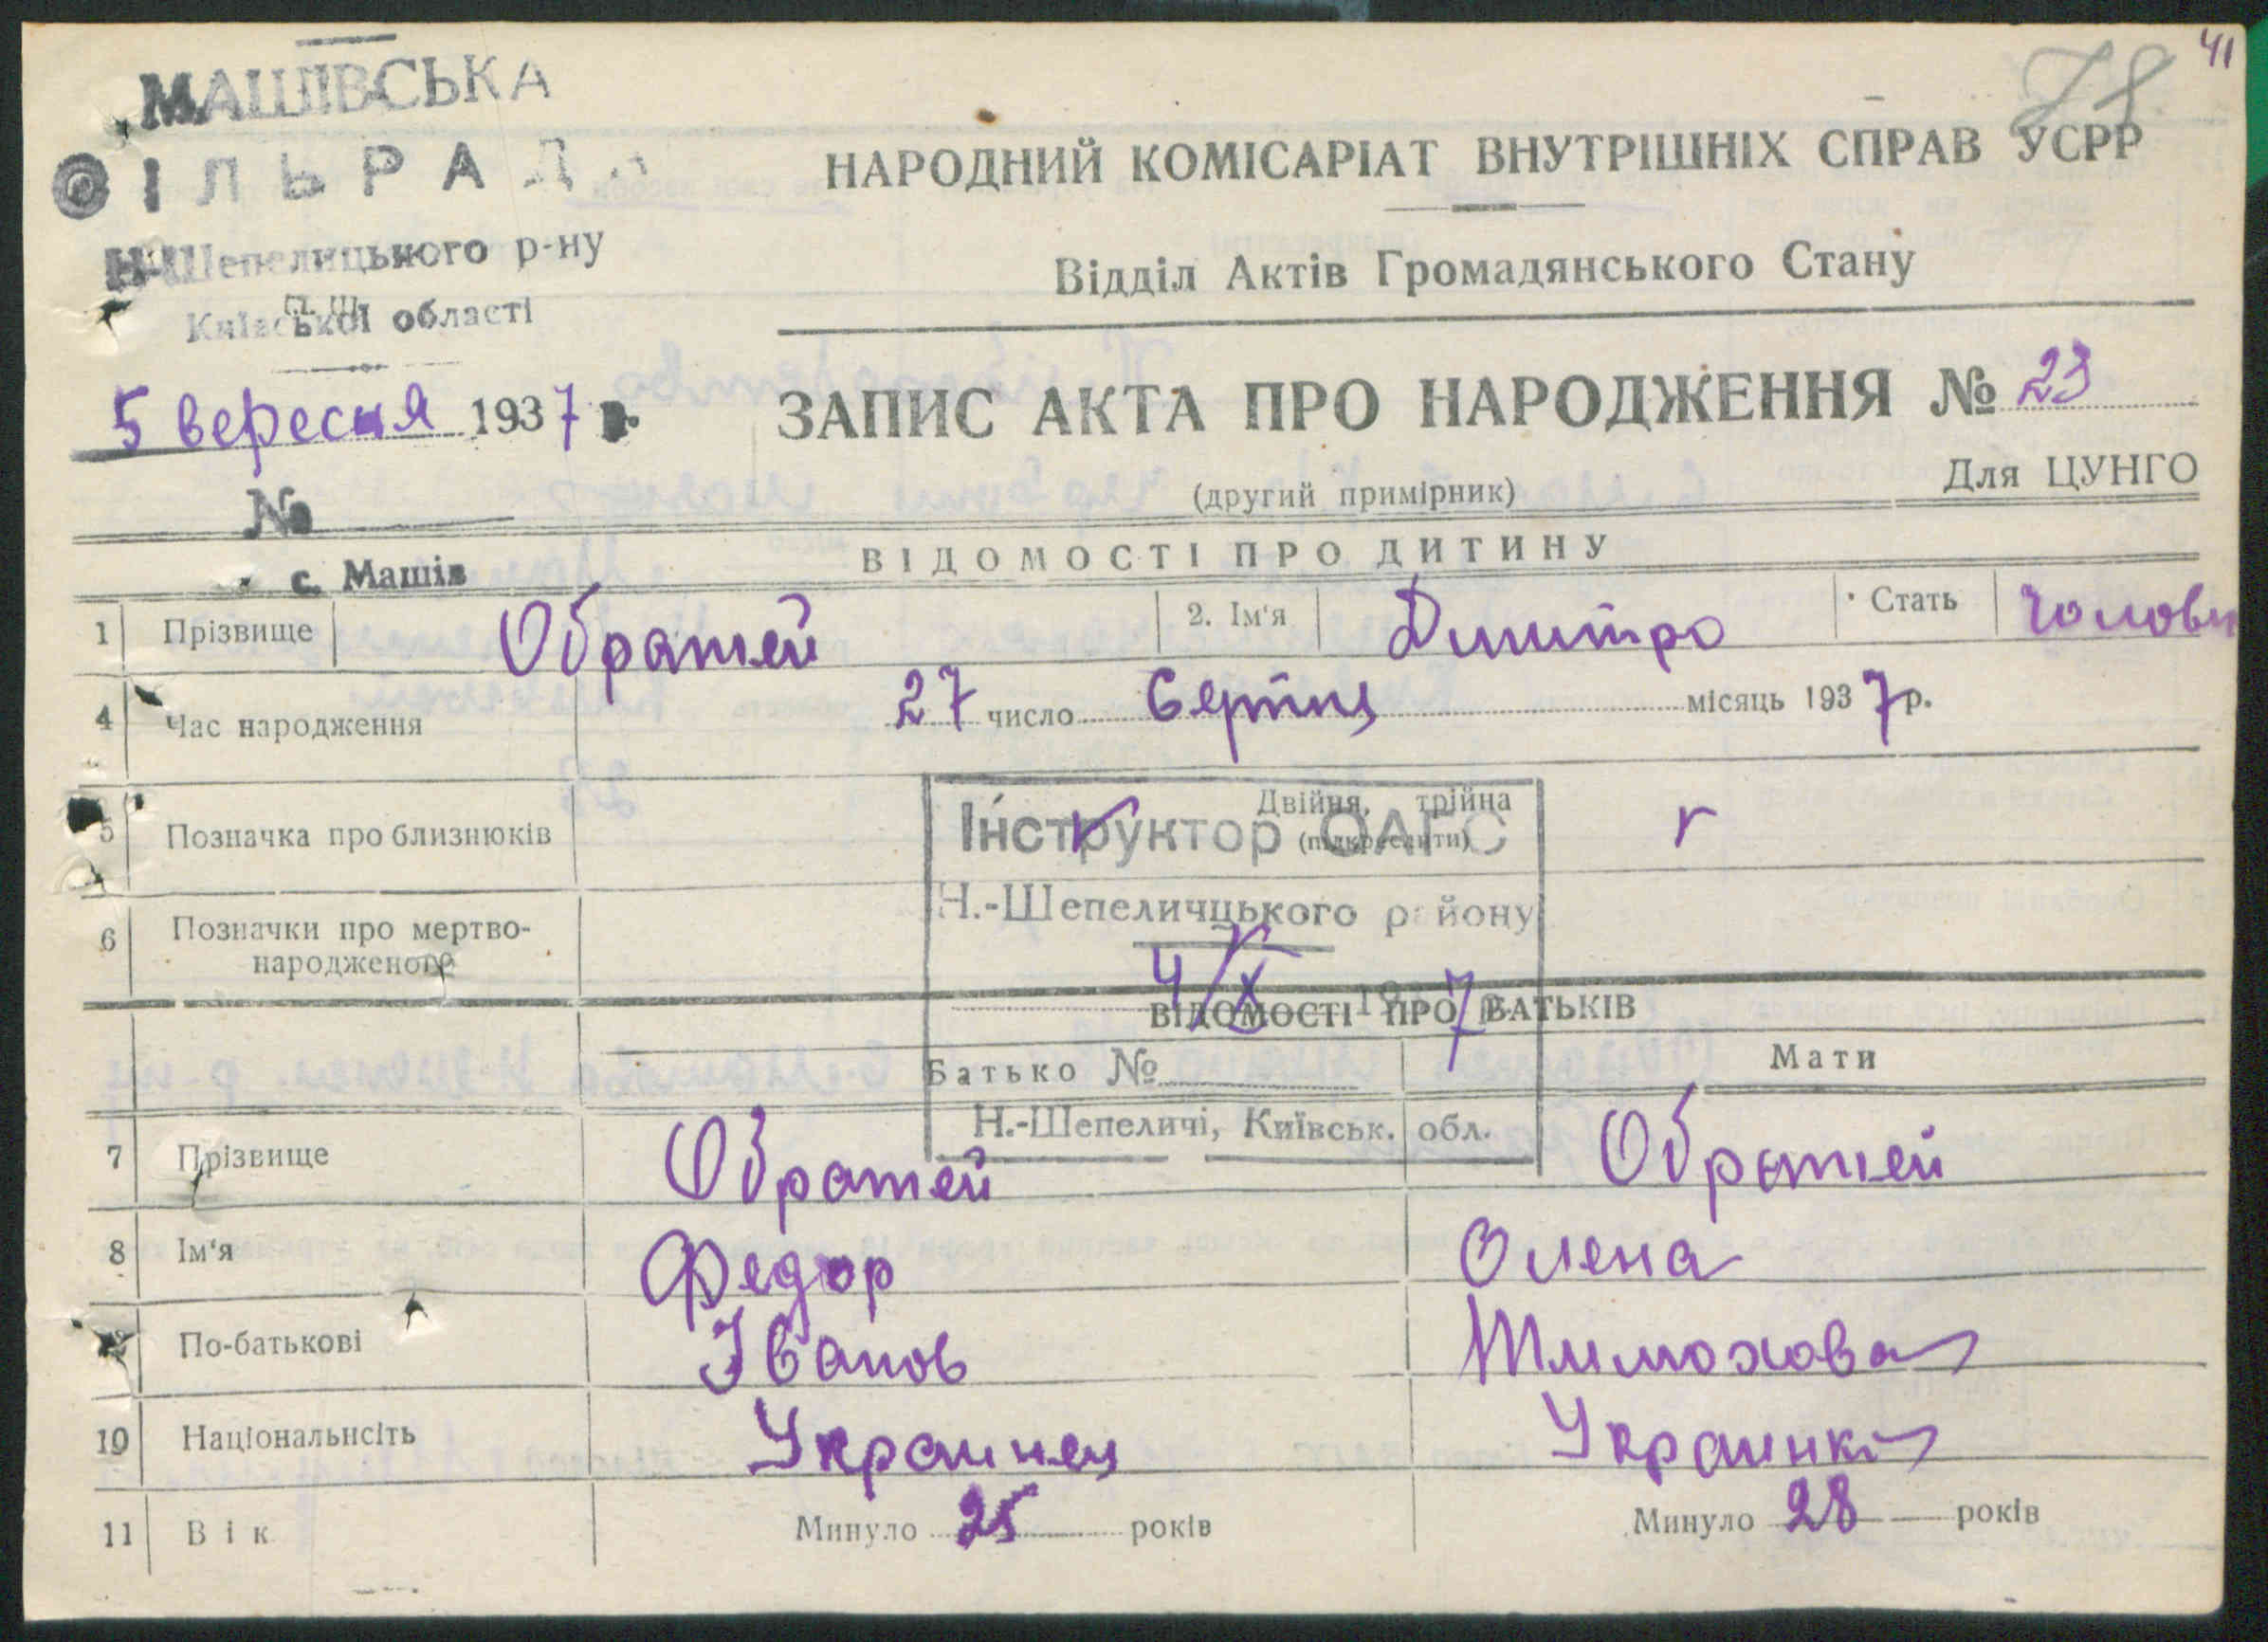 41
78
МАШІВСЬКА
СІЛЬРАДА
Н-Шепелицького р-ну
Київської області
НАРОДНИЙ КОМІСАРІАТ ВНУТРІШНІХ СПРАВ УСРР
Відділ Актів Громадянського Стану
5 вересня 1937 р.
ЗАПИС АКТА ПРО НАРОДЖЕННЯ № 23
(другий примірник)
Для ЦУНГО
№
с. Машів
ВІДОМОСТІ ПРО ДИТИНУ
1 Прізвище Обратей 2. Ім'я Дмитро Стать чолови
4 Час народження 27 число Серпня місяць 1937 р.
5 Позначка про близнюків Двійня, трійна
(підкреслити)
Інструктор ОАГС
Н.-Шепеличцького району
6 Позначки про мертво-
народженого
4/X 1937 р.
ВІДОМОСТІ ПРО БАТЬКІВ
Батько Мати
№
Н.-Шепеличі, Київськ. обл.
7 Прізвище Обратей Обратей
8 Ім'я Федор Олена
По-батькові Іванов Тимохова
10 Національнсіть Украинец Украинка
11 Вік Минуло 25 років Минуло 28 років